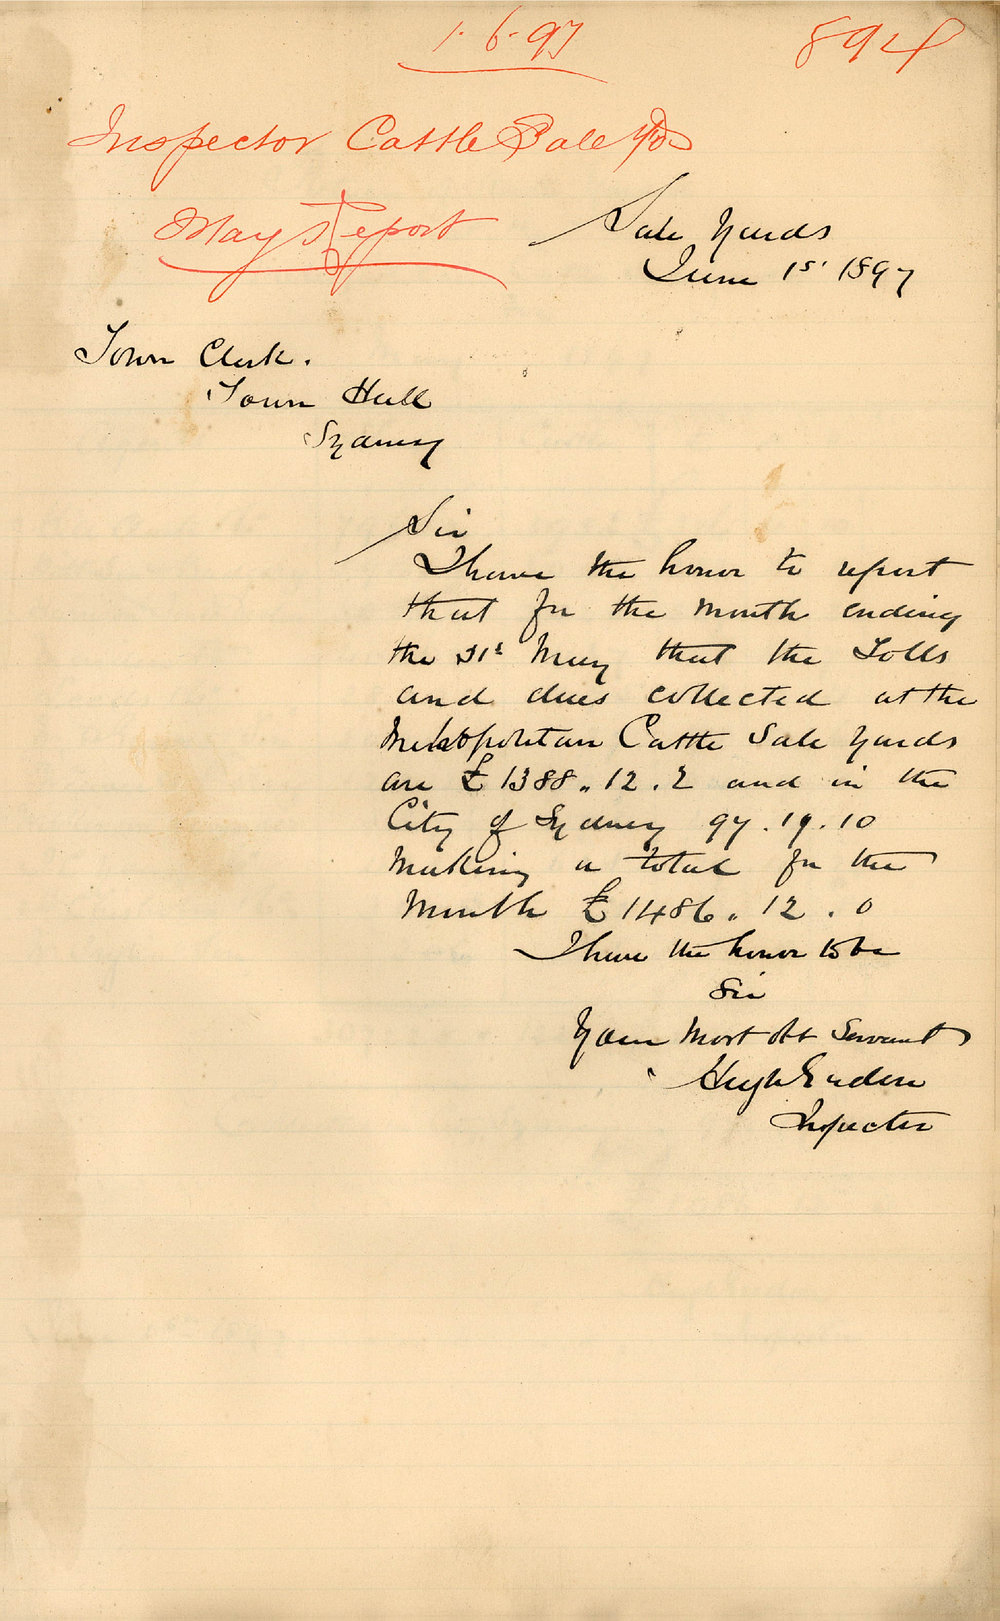 1.6.97
894
Inspector Cattle Sale Yds
May Report
Sale Yards
June 1st 1897
Town Clerk.
Town Hall
Sydney
Sir
I have the honor to report
that for the month ending
the 31st May that the Tolls
and dues collected at the
Metropolitan Cattle Sale Yards
are £1388.12.2 and in the
City of Sydney 97.19.10
Making a total for the
Month £1486.12.0
I have the honor to be
Sir
Your Most Obt Servant
Hugh
Inspector